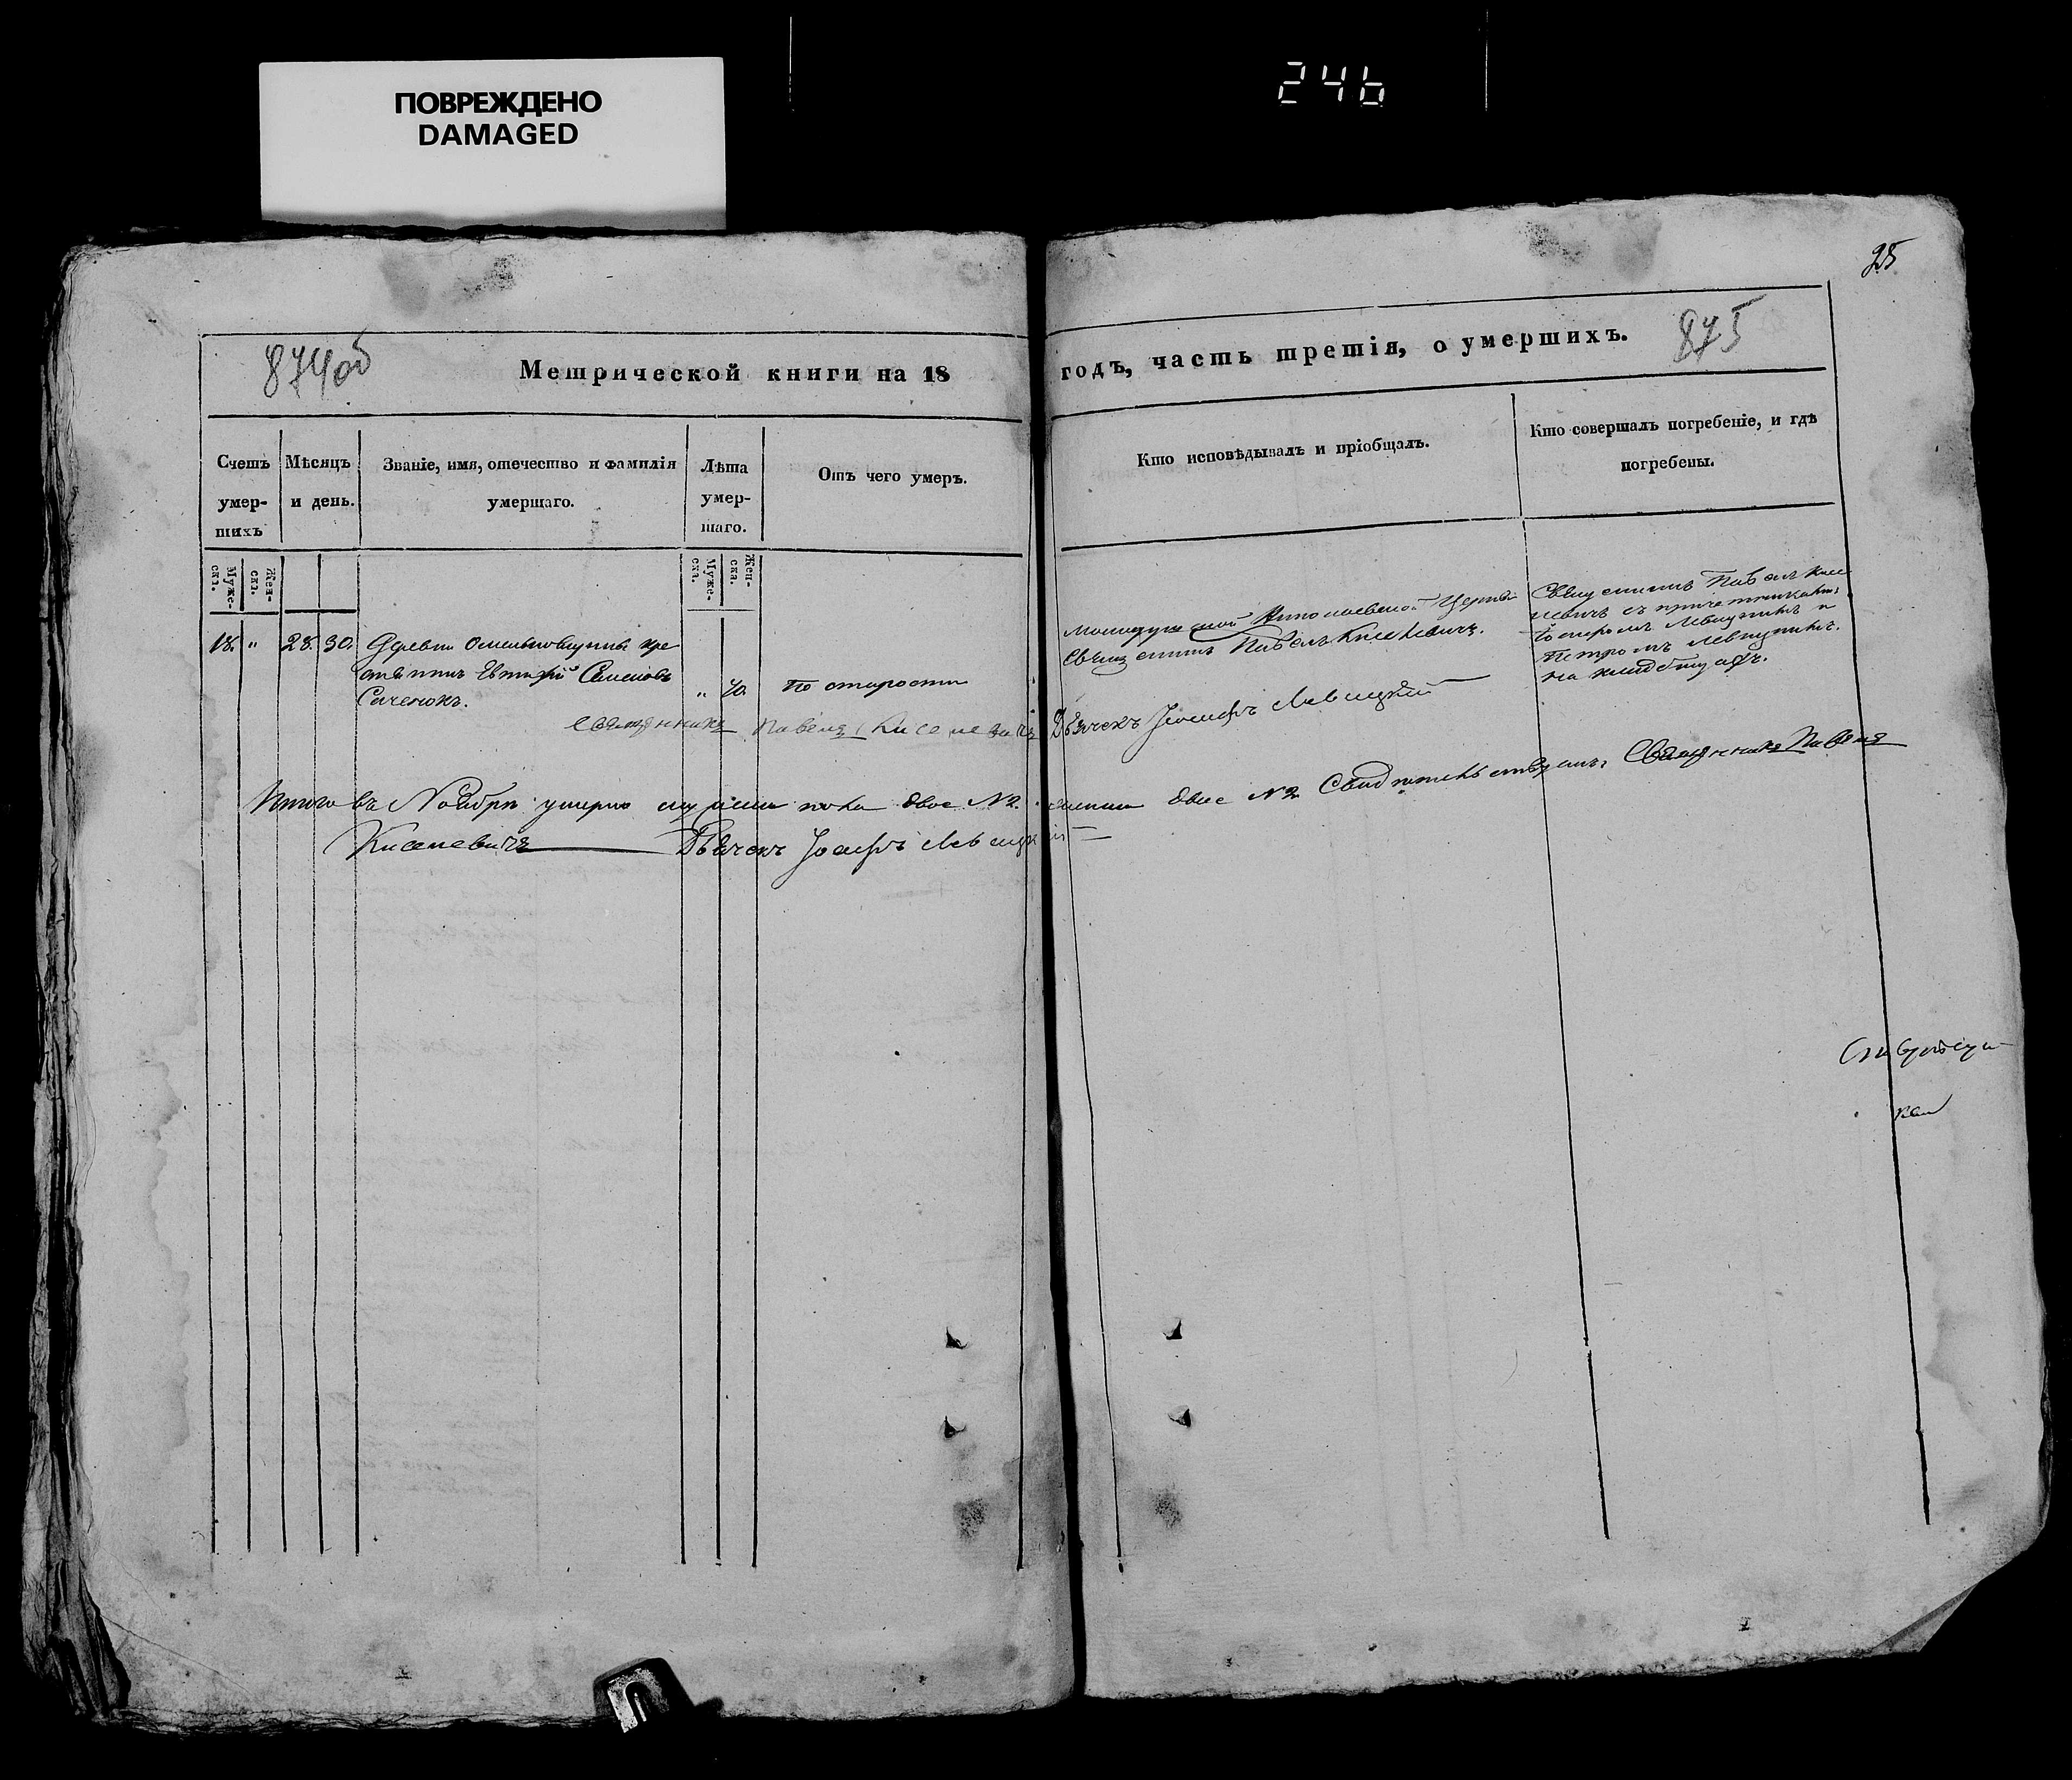 ПОВРЕЖДЕНО
DAMAGED
246
25
874об
875
Метрической книги на 18
годъ, часть третія, о умершихъ.
Счетъ умер-шихъ
Мѣсяцъ и день.
Званіе, имя, отечество и фамилія умершаго.
Лѣта умер-шаго.
Отъ чего умеръ.
Кто исповѣдывалъ и пріобщалъ.
Кто совершалъ погребеніе, и гдѣ погребены.
Муже-ска.
Жен-ска.
Муже-ска.
Жен-ска.
18. " 28. 30. Деревни кре
стьянинъ Семеновъ
Саченокъ.
" 70. По старости
Николаевской Церкви
Священникъ Павелъ Киселевичъ.
Священникъ Павелъ Кисе
левичъ съ
и
Петромъ
на кладбищѣ.
Священникъ Павелъ Киселевичъ Дьячекъ Іосифъ Левицкій
Итого въ Ноябрѣ умерло мужеска пола двое №2. женска двое №2 Свидѣтельствуемъ: Священникъ Павелъ
Киселевичъ Дьячекъ Іосифъ Левицкій